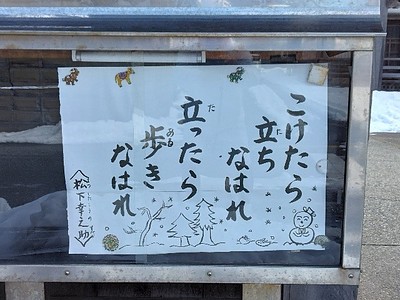 こけたら
立ちなはれ
立ったら
歩きなはれ
松下幸之助